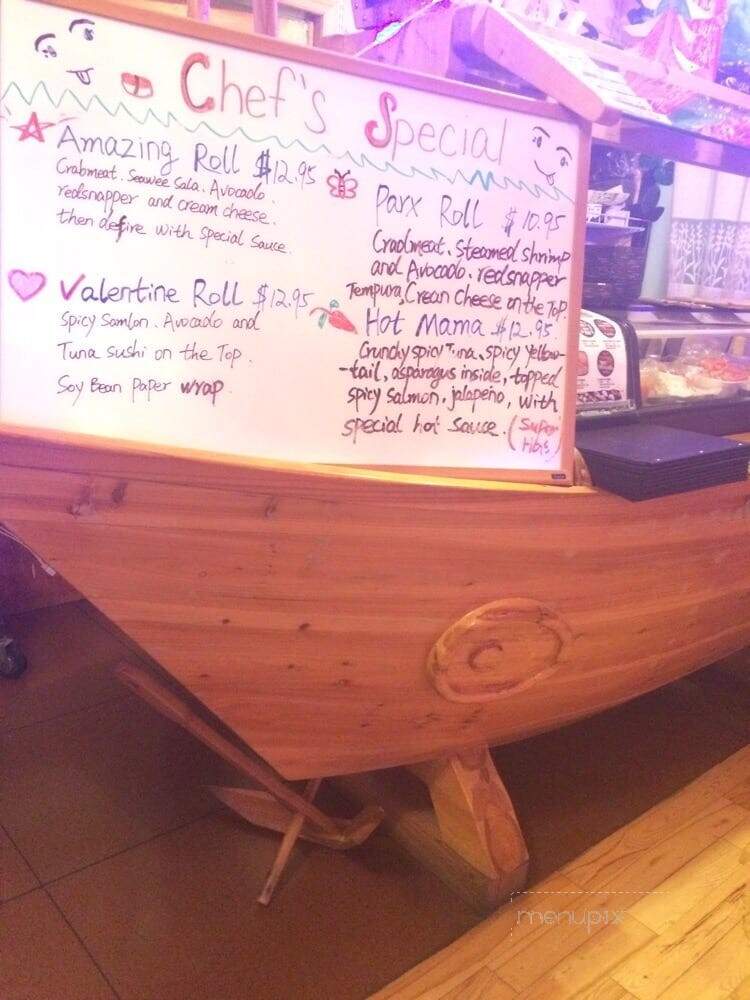 Chef's Special
Amazing Roll $12.95
Crabmeat. Seawee Sala. Avocado.
redsnapper and cream cheese.
then defire with Special Sauce.
Valentine Roll $12.95
Spicy Samlon. Avocado and
Tuna sushi on the Top.
Soy Bean Paper wrap
Parx Roll $10.95
Crabmeat. Steamed shrimp
and Avocado. redsnapper
Tempura, Crean Cheese on the Top.
Hot Mama $12.95
Crunchy spicy Tuna, spicy yellow-
-tail, asparagus inside, topped
spicy salmon, jalapeño, with
special hot sauce. (Super
Hot)
menupix